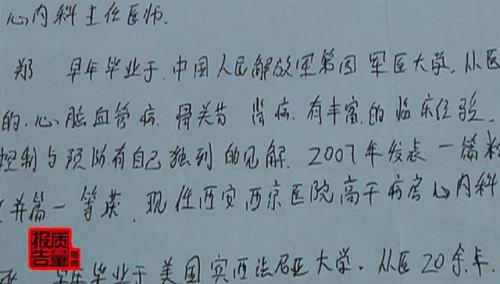 心内科主任医师.
郑 早年毕业于.中国人民解放军第四军医大学.从医
的.心.脑血管病.骨关节 肾病.有丰富的临床经验.
控制与预防有自己独到的见解.2007年发表一篇
并篇一等奖.现任西安西京医院高干病房心内科
质量报告
早年毕业于美国宾西法尼亚大学.从医20余年.